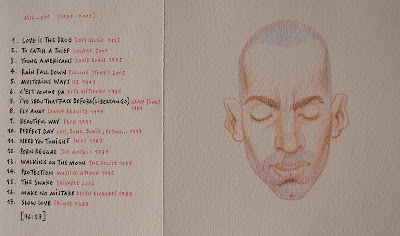 MIX-UM [1983 - 2005]
1. LOVE IS THE DRUG ROXY MUSIC 1975
2. TO CATCH A THIEF LOVAGE 2001
3. YOUNG AMERICANS DAVID BOWIE 1975
4. RAIN FALL DOWN ROLLING STONES 2005
5. MYSTERIOUS WAYS U2 1991
6. C'EST COMME ÇA RITA MITSOUKO 1986
8. I'VE SEEN THAT FACE BEFORE (LIBERTANGO) GRACE JONES
9. FLY AWAY LENNY KRAVITZ
9. BEAUTIFUL WAY BECK 1999
10. PERFECT DAY LOU, BONO, BOWIE, ELTON... 1997
11. NEED YOU TONIGHT INXS 1987
12. PORN REGGAE THE
13. WALKING ON THE MOON THE POLICE 1979
14. PROTECTION MASSIVE ATTACK 1995
15. THE SNAKE 2002
16. MAKE NO MISTAKE KEITH RICHARDS 1988
17. SLOW LOVE PRINCE 1987
[76:57]